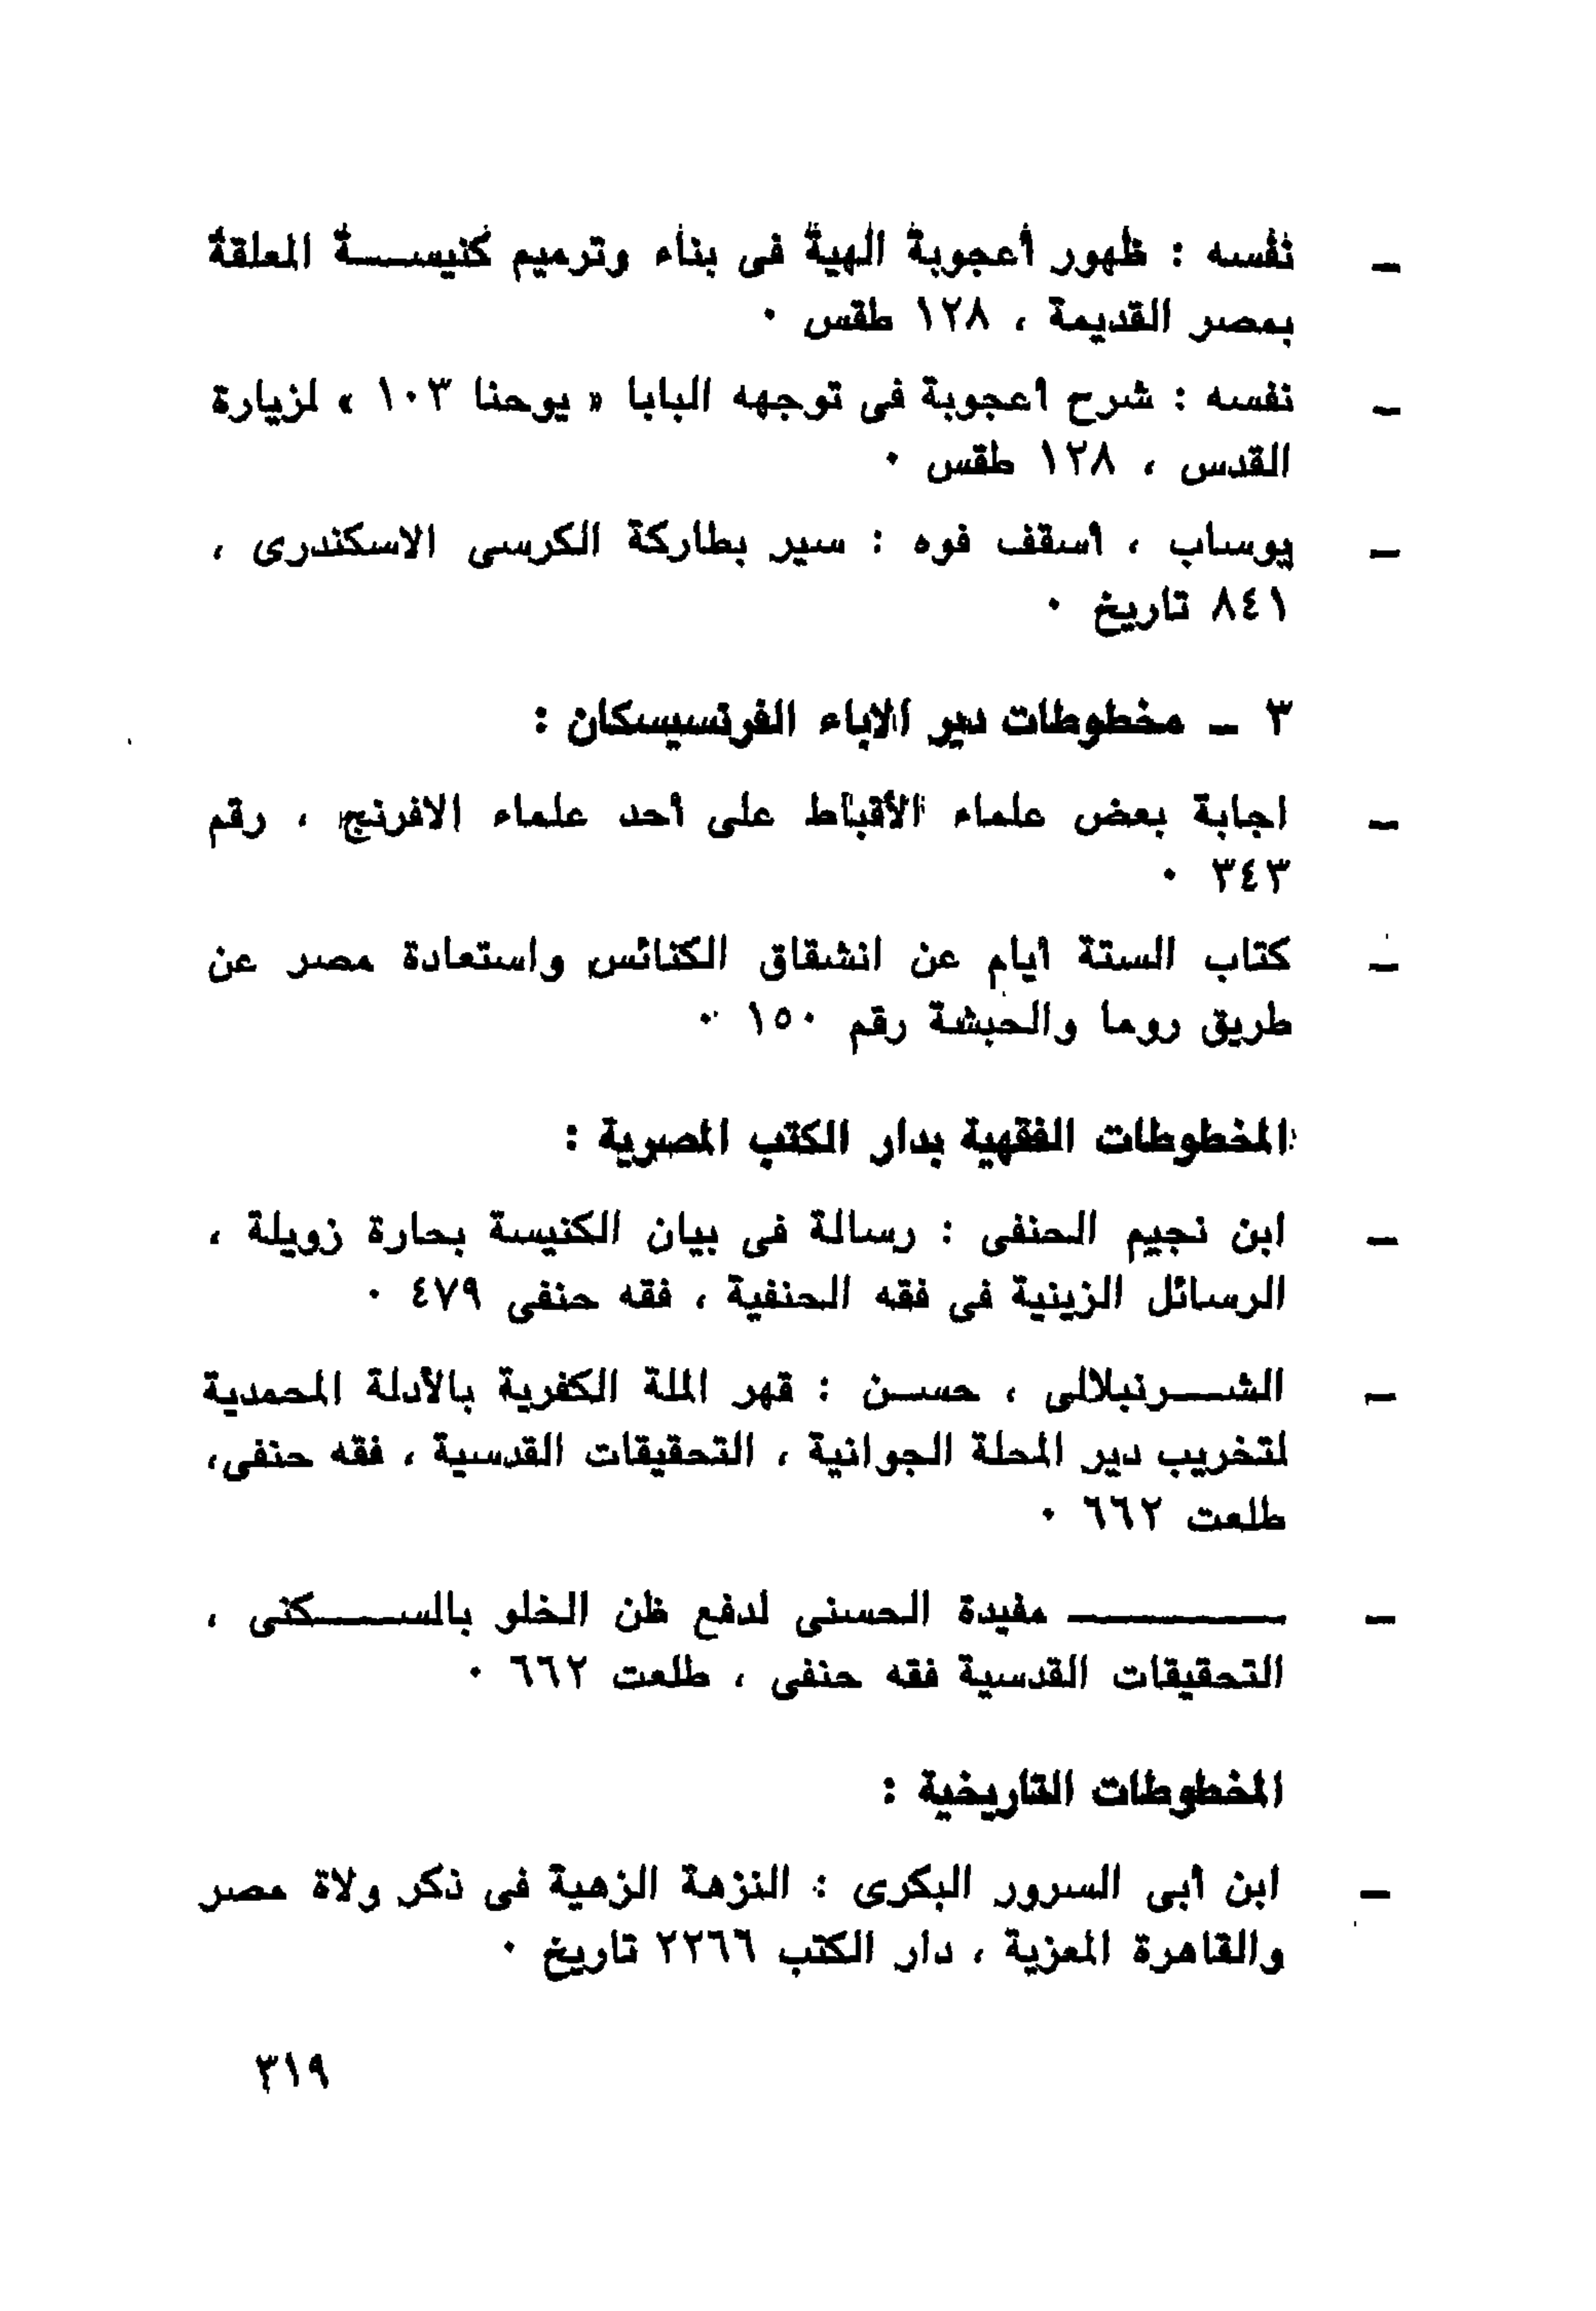 ـ نفسه : ظهور أعجوبة الهية فى بناء وترميم كنيسة المعلقة
بمصر القديمة ، ١٢٨ طقس ٠
ـ نفسه : شرح أعجوبة فى توجهه البابا « يوحنا ١٠٣ » لزيارة
القدس ، ١٢٨ طقس ٠
ـ يوساب ، أسقف فوه : سير بطاركة الكرسى الاسكندرى ،
٨٤١ تاريخ ٠
٣ ـ مخطوطات دير الاباء الفرنسيسكان :
ـ اجابة بعض علماء الأقباط على أحد علماء الافرنج ، رقم
٣٤٣ ٠
ـ كتاب الستة أيام عن انشقاق الكنائس واستعادة مصر عن
طريق روما والحبشة رقم ١٥٠ ٠
المخطوطات الفقهية بدار الكتب المصرية :
ـ ابن نجيم الحنفى : رسالة فى بيان الكنيسة بحارة زويلة ،
الرسائل الزينية فى فقه الحنفية ، فقه حنفى ٤٧٩ ٠
ـ الشرنبلالى ، حسن : قهر الملة الكفرية بالأدلة المحمدية
لتخريب دير المحلة الجوانية ، التحقيقات القدسية ، فقه حنفى،
طلعت ٦٦٢ ٠
ـ ـــــــــــ مفيدة الحسنى لدفع ظن الخلو بالسكنى ،
التحقيقات القدسية فقه حنفى ، طلعت ٦٦٢ ٠
المخطوطات التاريخية :
ـ ابن أبى السرور البكرى : النزهة الزهية فى ذكر ولاة مصر
والقاهرة المعزية ، دار الكتب ٢٢٦٦ تاريخ ٠
٣١٩